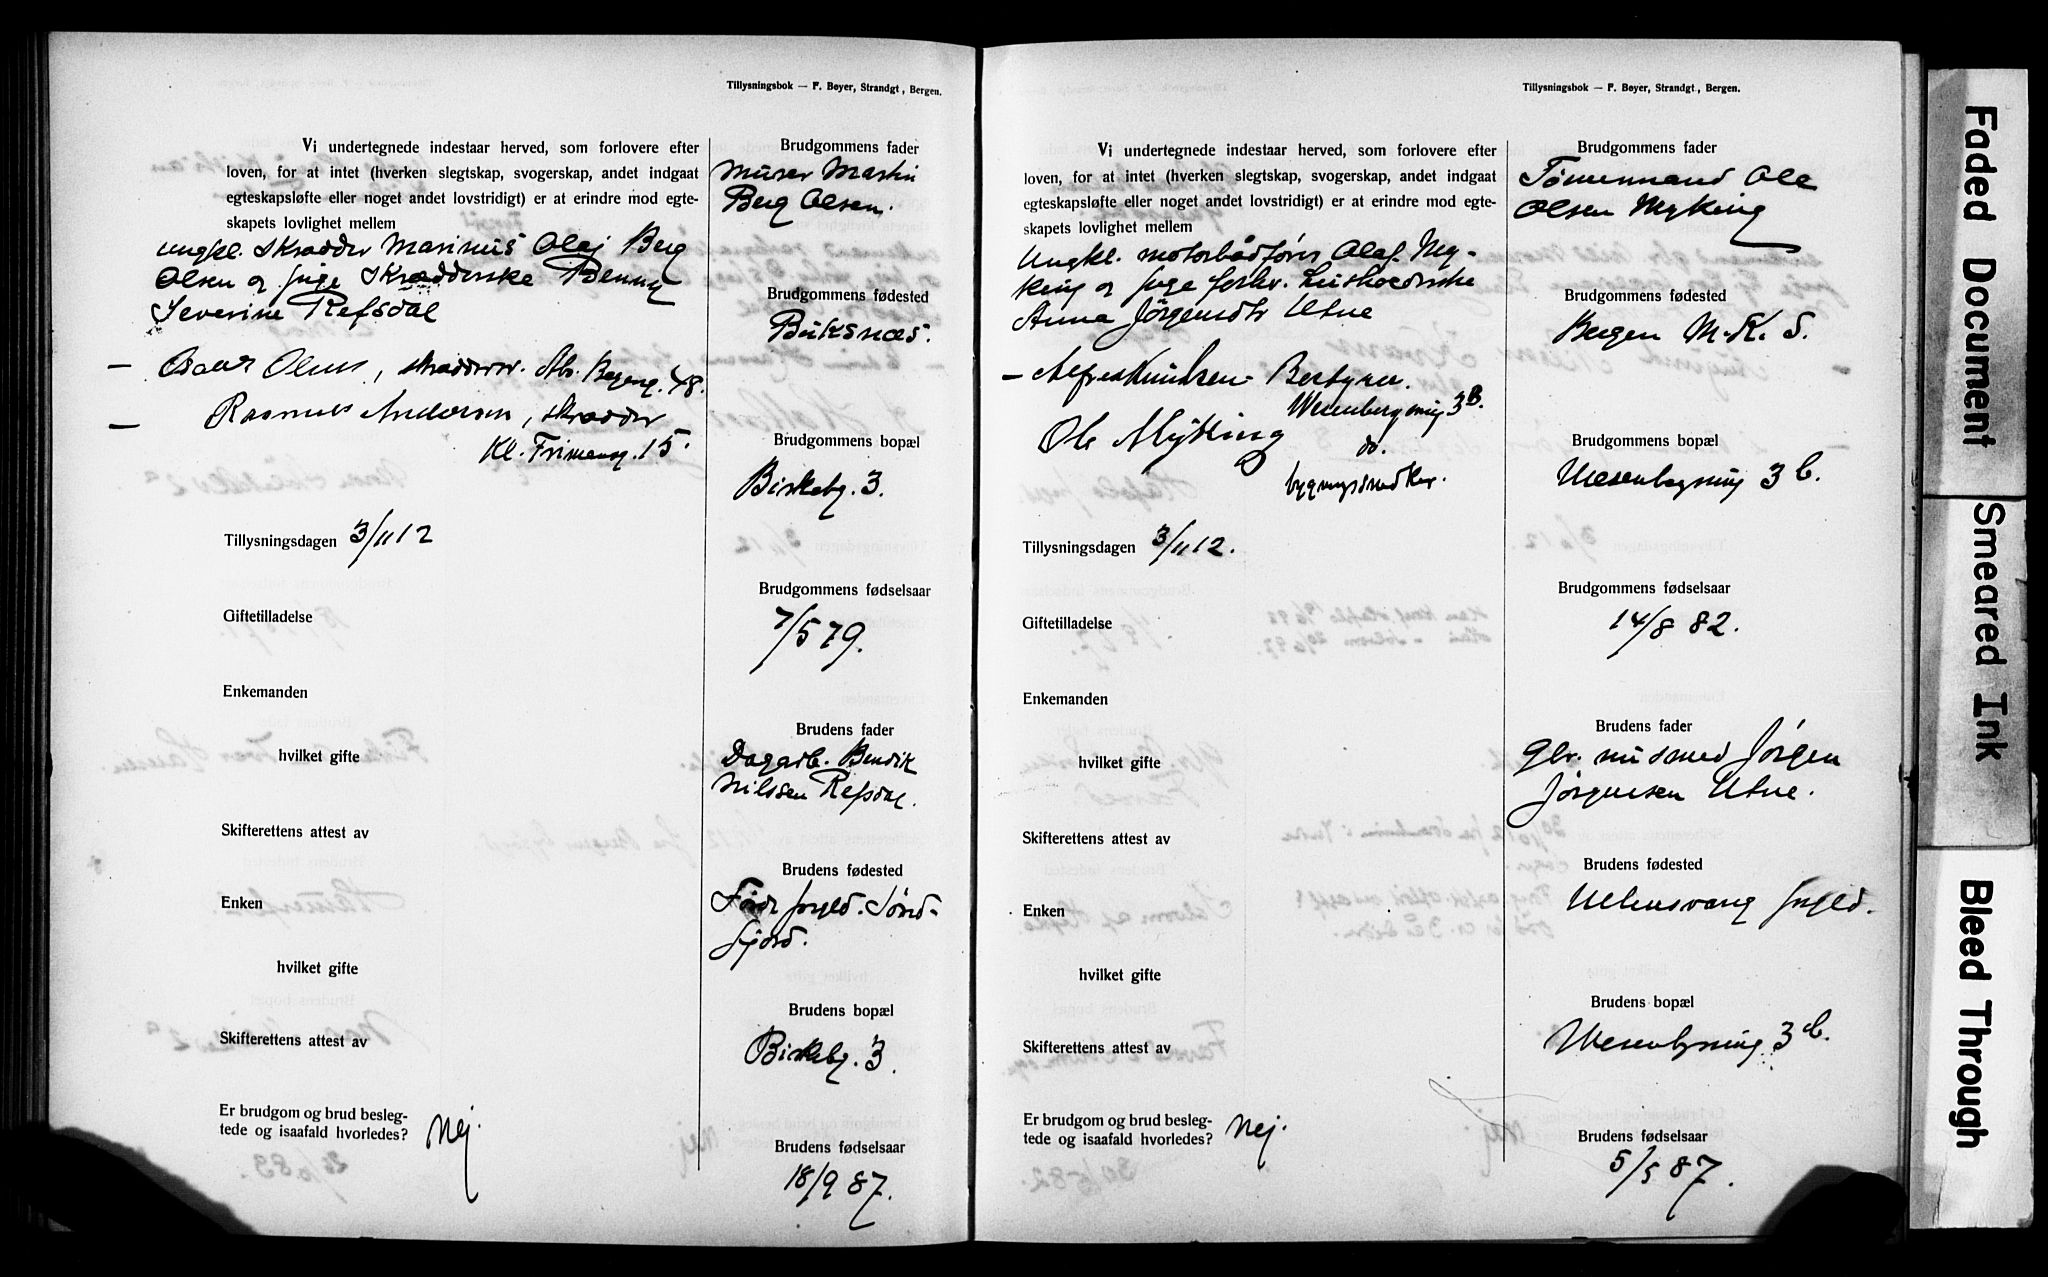 Tillysningsbok — F. Bøyer, Strandgt., Bergen.
Vi undertegnede indestaar herved, som forlovere efter
loven, for at intet (hverken slegtskap, svogerskap, andet indgaat
egteskapsløfte eller noget andet lovstridigt) er at erindre mod egte-
skapets lovlighet mellem
Ungkl. Skrædder Marinus Olaj Berg
Olsen og pige Skrædderske Benny
Severine Refsdal
— Olsen, skrædder. Bergeng. 48.
— Rasmus Andersen, skrædder
Kl. 15.
Tillysningsdagen 3/11 12
Giftetilladelse
Enkemanden
hvilket gifte
Skifterettens attest av
Enken
hvilket gifte
Skifterettens attest av
Er brudgom og brud besleg-
tede og isaafald hvorledes? Nej.
Brudgommens fader
Murer Martin
Berg Olsen.
Brudgommens fødested
Buksnæs.
Brudgommens bopæl
Birkebg. 3.
Brudgommens fødselsaar
7/5 79.
Brudens fader
Dagarb. Bendik
Nilssen Refsdal.
Brudens fødested
Førde prgld. Sønd-
fjord.
Brudens bopæl
Birkebg. 3
Brudens fødselsaar
18/9 87.
Tillysningsbok — F. Bøyer, Strandgt., Bergen.
Vi undertegnede indestaar herved, som forlovere efter
loven, for at intet (hverken slegtskap, svogerskap, andet indgaat
egteskapsløfte eller noget andet lovstridigt) er at erindre mod egte-
skapets lovlighet mellem
Ungkl. motorbådfører Olaf My-
king og pige
Anna Jørgensdtr Utne
— Alfred Knudsen Bestyrer.
3B.
Ole Myking do.
bygningssnedker.
Tillysningsdagen 3/11 12.
Giftetilladelse
Enkemanden
hvilket gifte
Skifterettens attest av
Enken
hvilket gifte
Skifterettens attest av
Er brudgom og brud besleg-
tede og isaafald hvorledes? Nej.
Brudgommens fader
Tømmermand Ole
Olsen Myking
Brudgommens fødested
Bergen M. K. S.
Brudgommens bopæl
3 b.
Brudgommens fødselsaar
14/8 82.
Brudens fader
Gbr. Jørgen
Jørgensen Utne.
Brudens fødested
Ullensvang prgld.
Brudens bopæl
3 b.
Brudens fødselsaar
5/5 87.
Faded Document
Smeared Ink
Bleed Through